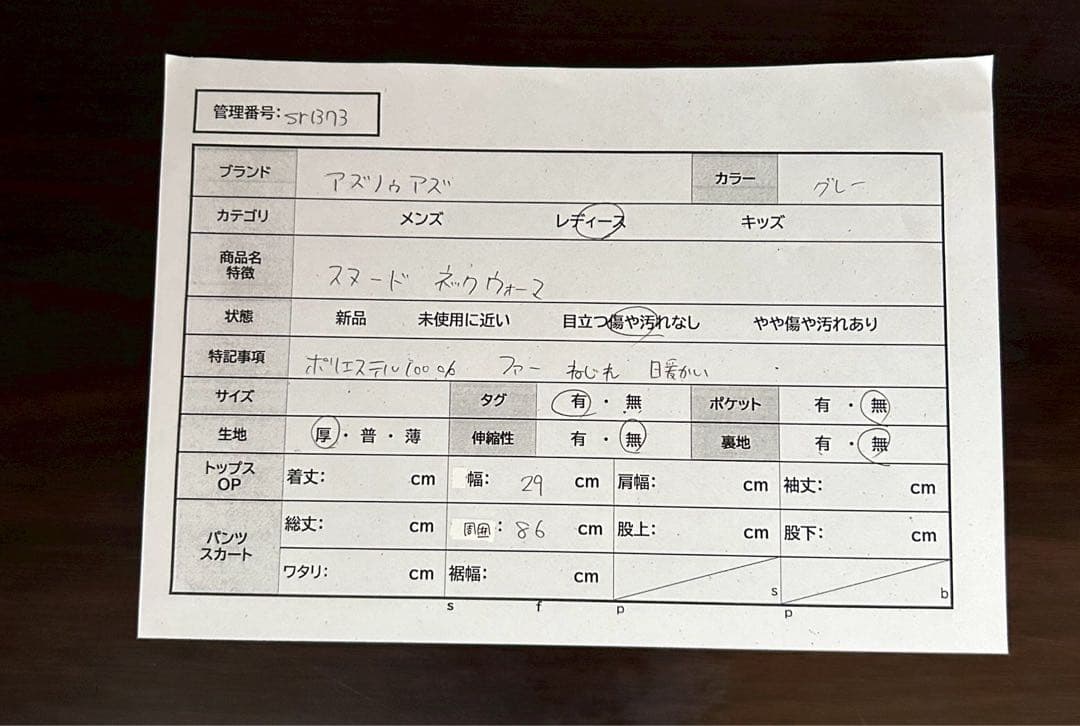 管理番号: sr1373
ブランド アズノゥアズ カラー グレー
カテゴリ メンズ レディース キッズ
商品名 特徴 スヌード ネックウォーマ
状態 新品 未使用に近い 目立つ傷や汚れなし やや傷や汚れあり
特記事項 ポリエステル100% ファー ねじれ 暖かい
サイズ タグ 有・無 ポケット 有・無
生地 厚・普・薄 伸縮性 有・無 裏地 有・無
トップス OP 着丈: cm 幅: 29 cm 肩幅: cm 袖丈: cm
パンツ スカート 総丈: cm 周囲: 86 cm 股上: cm 股下: cm
ワタリ: cm 裾幅: cm s b
s f p p